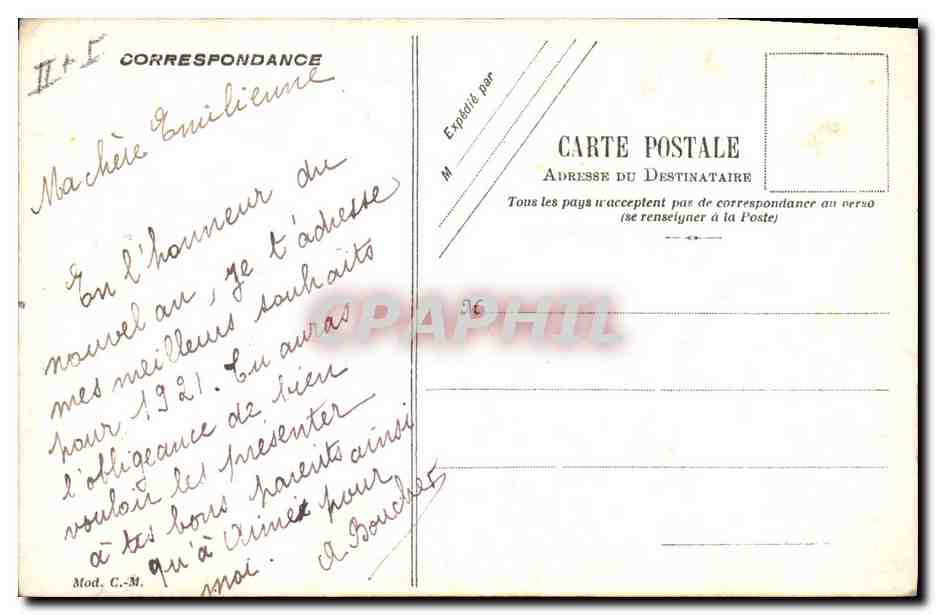 II + I
CORRESPONDANCE
Ma chère Emilienne
En l'honneur du
nouvel an, je t'adresse
mes meilleurs souhaits
pour 1921. Tu auras
l'obligeance de bien
vouloir les présenter
à tes bons parents ainsi
qu'à Aimée pour
moi.
A Boucher
Mod. C.-M.
M Expédié par
CARTE POSTALE
ADRESSE DU DESTINATAIRE
Tous les pays n'acceptent pas de correspondance au verso
(se renseigner à la Poste)
CPAPHIL